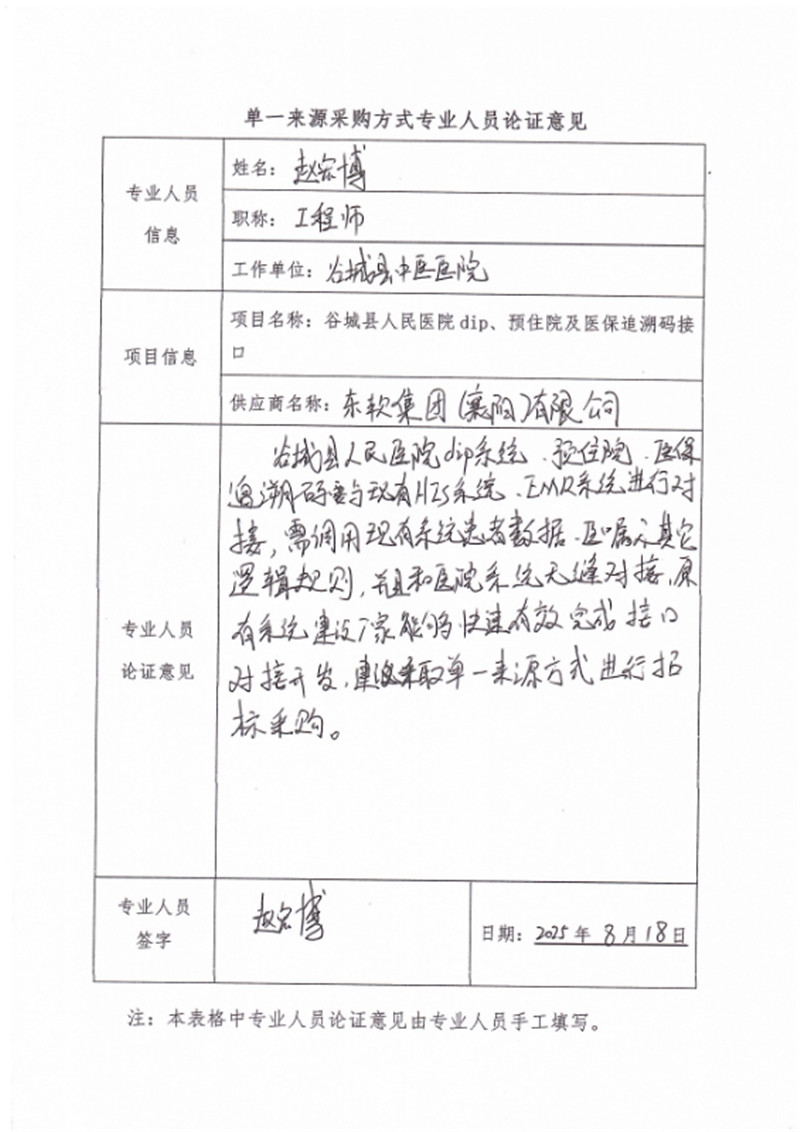 单一来源采购方式专业人员论证意见
专业人员
信息
姓名：赵宏博
职称：工程师
工作单位：谷城县中医医院
项目信息
项目名称：谷城县人民医院dip、预住院及医保追溯码接
口
供应商名称：东软集团（襄阳）有限公司
专业人员
论证意见
谷城县人民医院dip系统、预住院、医保
追溯码需与现有HIS系统、EMR系统进行对
接，需调用现有系统患者数据、医嘱及其它
逻辑规则，并且和医院系统无缝对接，原
有系统建设厂家能够快速有效完成接口
对接开发，建议采取单一来源方式进行招
标采购。
专业人员
签字
赵宏博
日期：2025年8月18日
注：本表格中专业人员论证意见由专业人员手工填写。